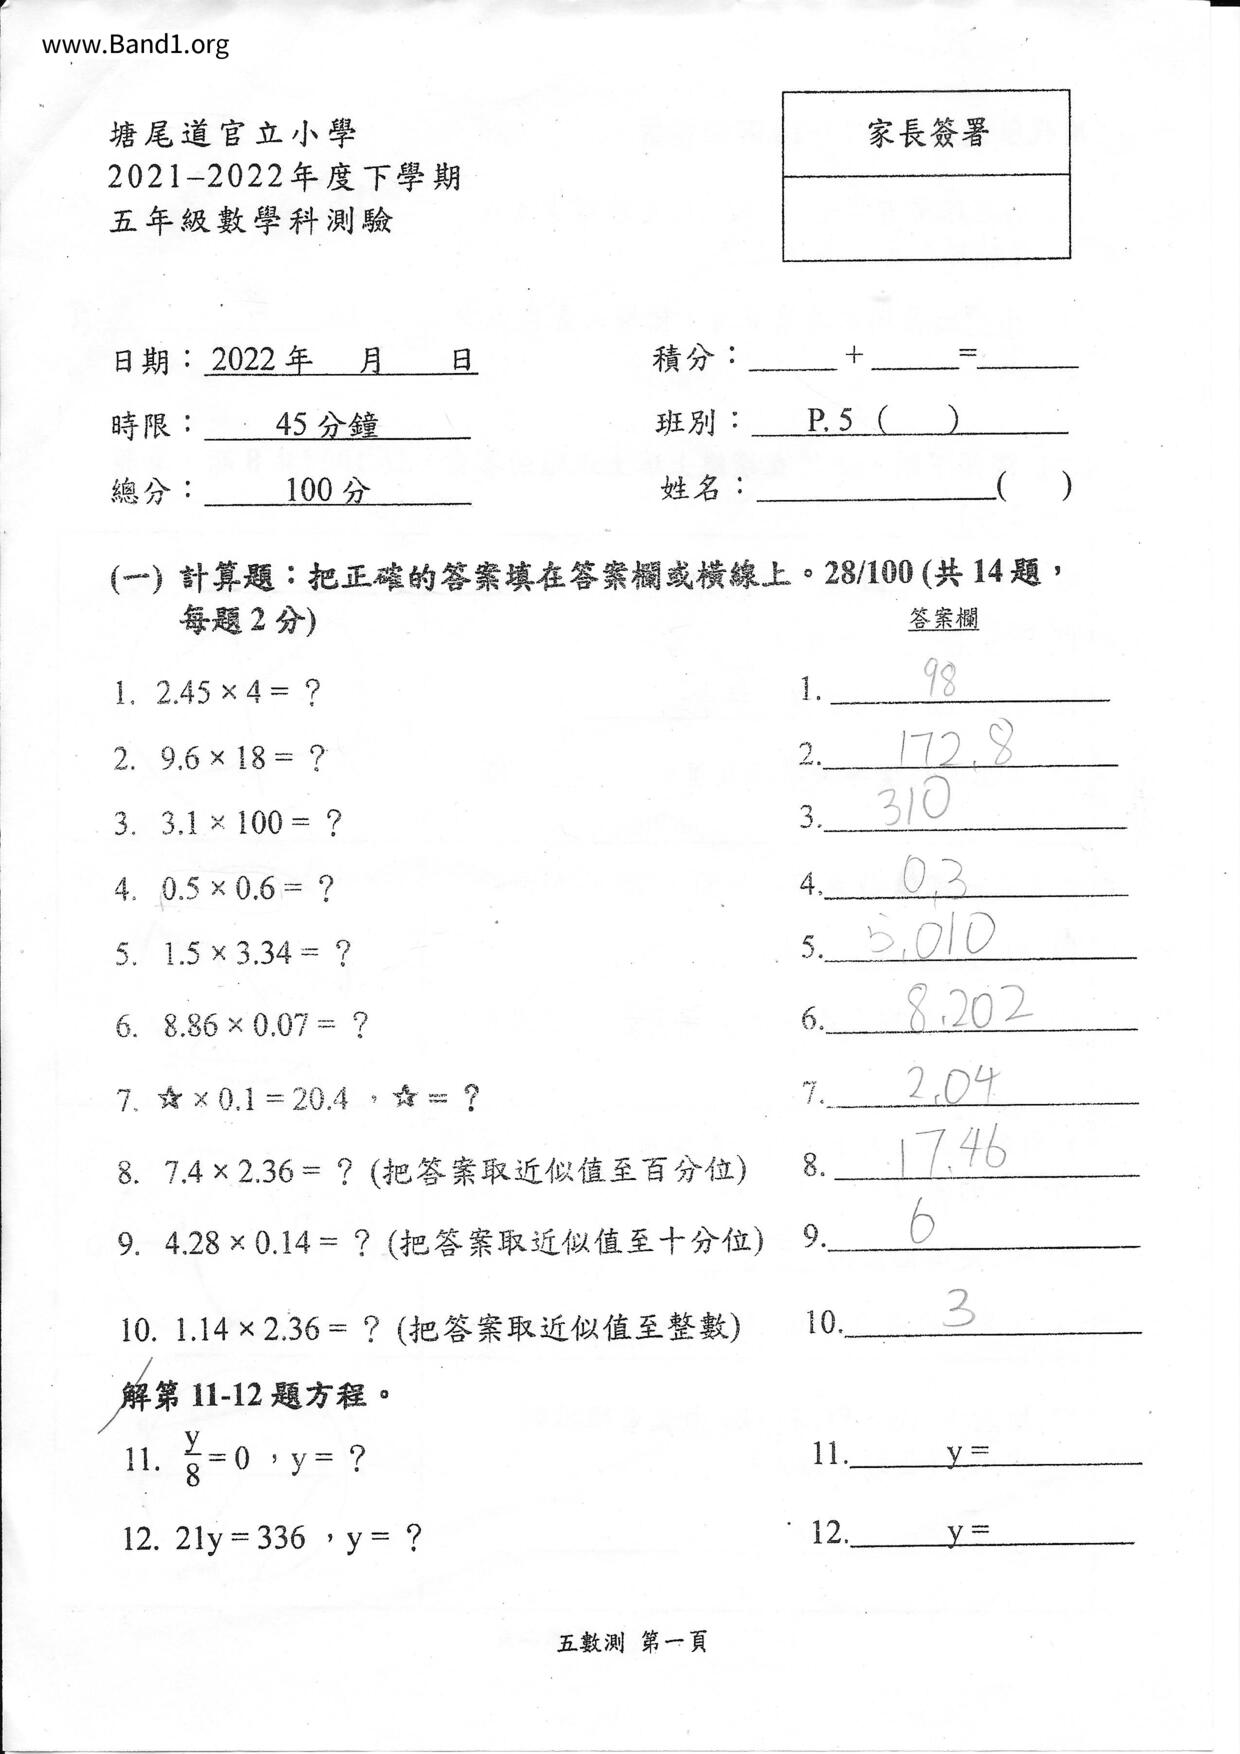 www.Band1.org
塘尾道官立小學
2021–2022年度下學期
五年級數學科測驗
家長簽署
日期：2022年 月 日
積分：______+______=_______
時限：45分鐘
班別：P. 5 ( )
總分：100分
姓名：________________( )
(一) 計算題：把正確的答案填在答案欄或橫線上。28/100 (共14題，
每題2分)
答案欄
1. 2.45 × 4 = ？ 1. 98
2. 9.6 × 18 = ？ 2. 172.8
3. 3.1 × 100 = ？ 3. 310
4. 0.5 × 0.6 = ？ 4. 0.3
5. 1.5 × 3.34 = ？ 5. 5.010
6. 8.86 × 0.07 = ？ 6. 8.202
7. ☆ × 0.1 = 20.4 ，☆ = ？ 7. 2.04
8. 7.4 × 2.36 = ？ (把答案取近似值至百分位) 8. 17.46
9. 4.28 × 0.14 = ？ (把答案取近似值至十分位) 9. 6
10. 1.14 × 2.36 = ？ (把答案取近似值至整數) 10. 3
解第 11-12 題方程。
11. y/8 = 0 ，y = ？ 11. y =
12. 21y = 336 ，y = ？ 12. y =
五數測 第一頁